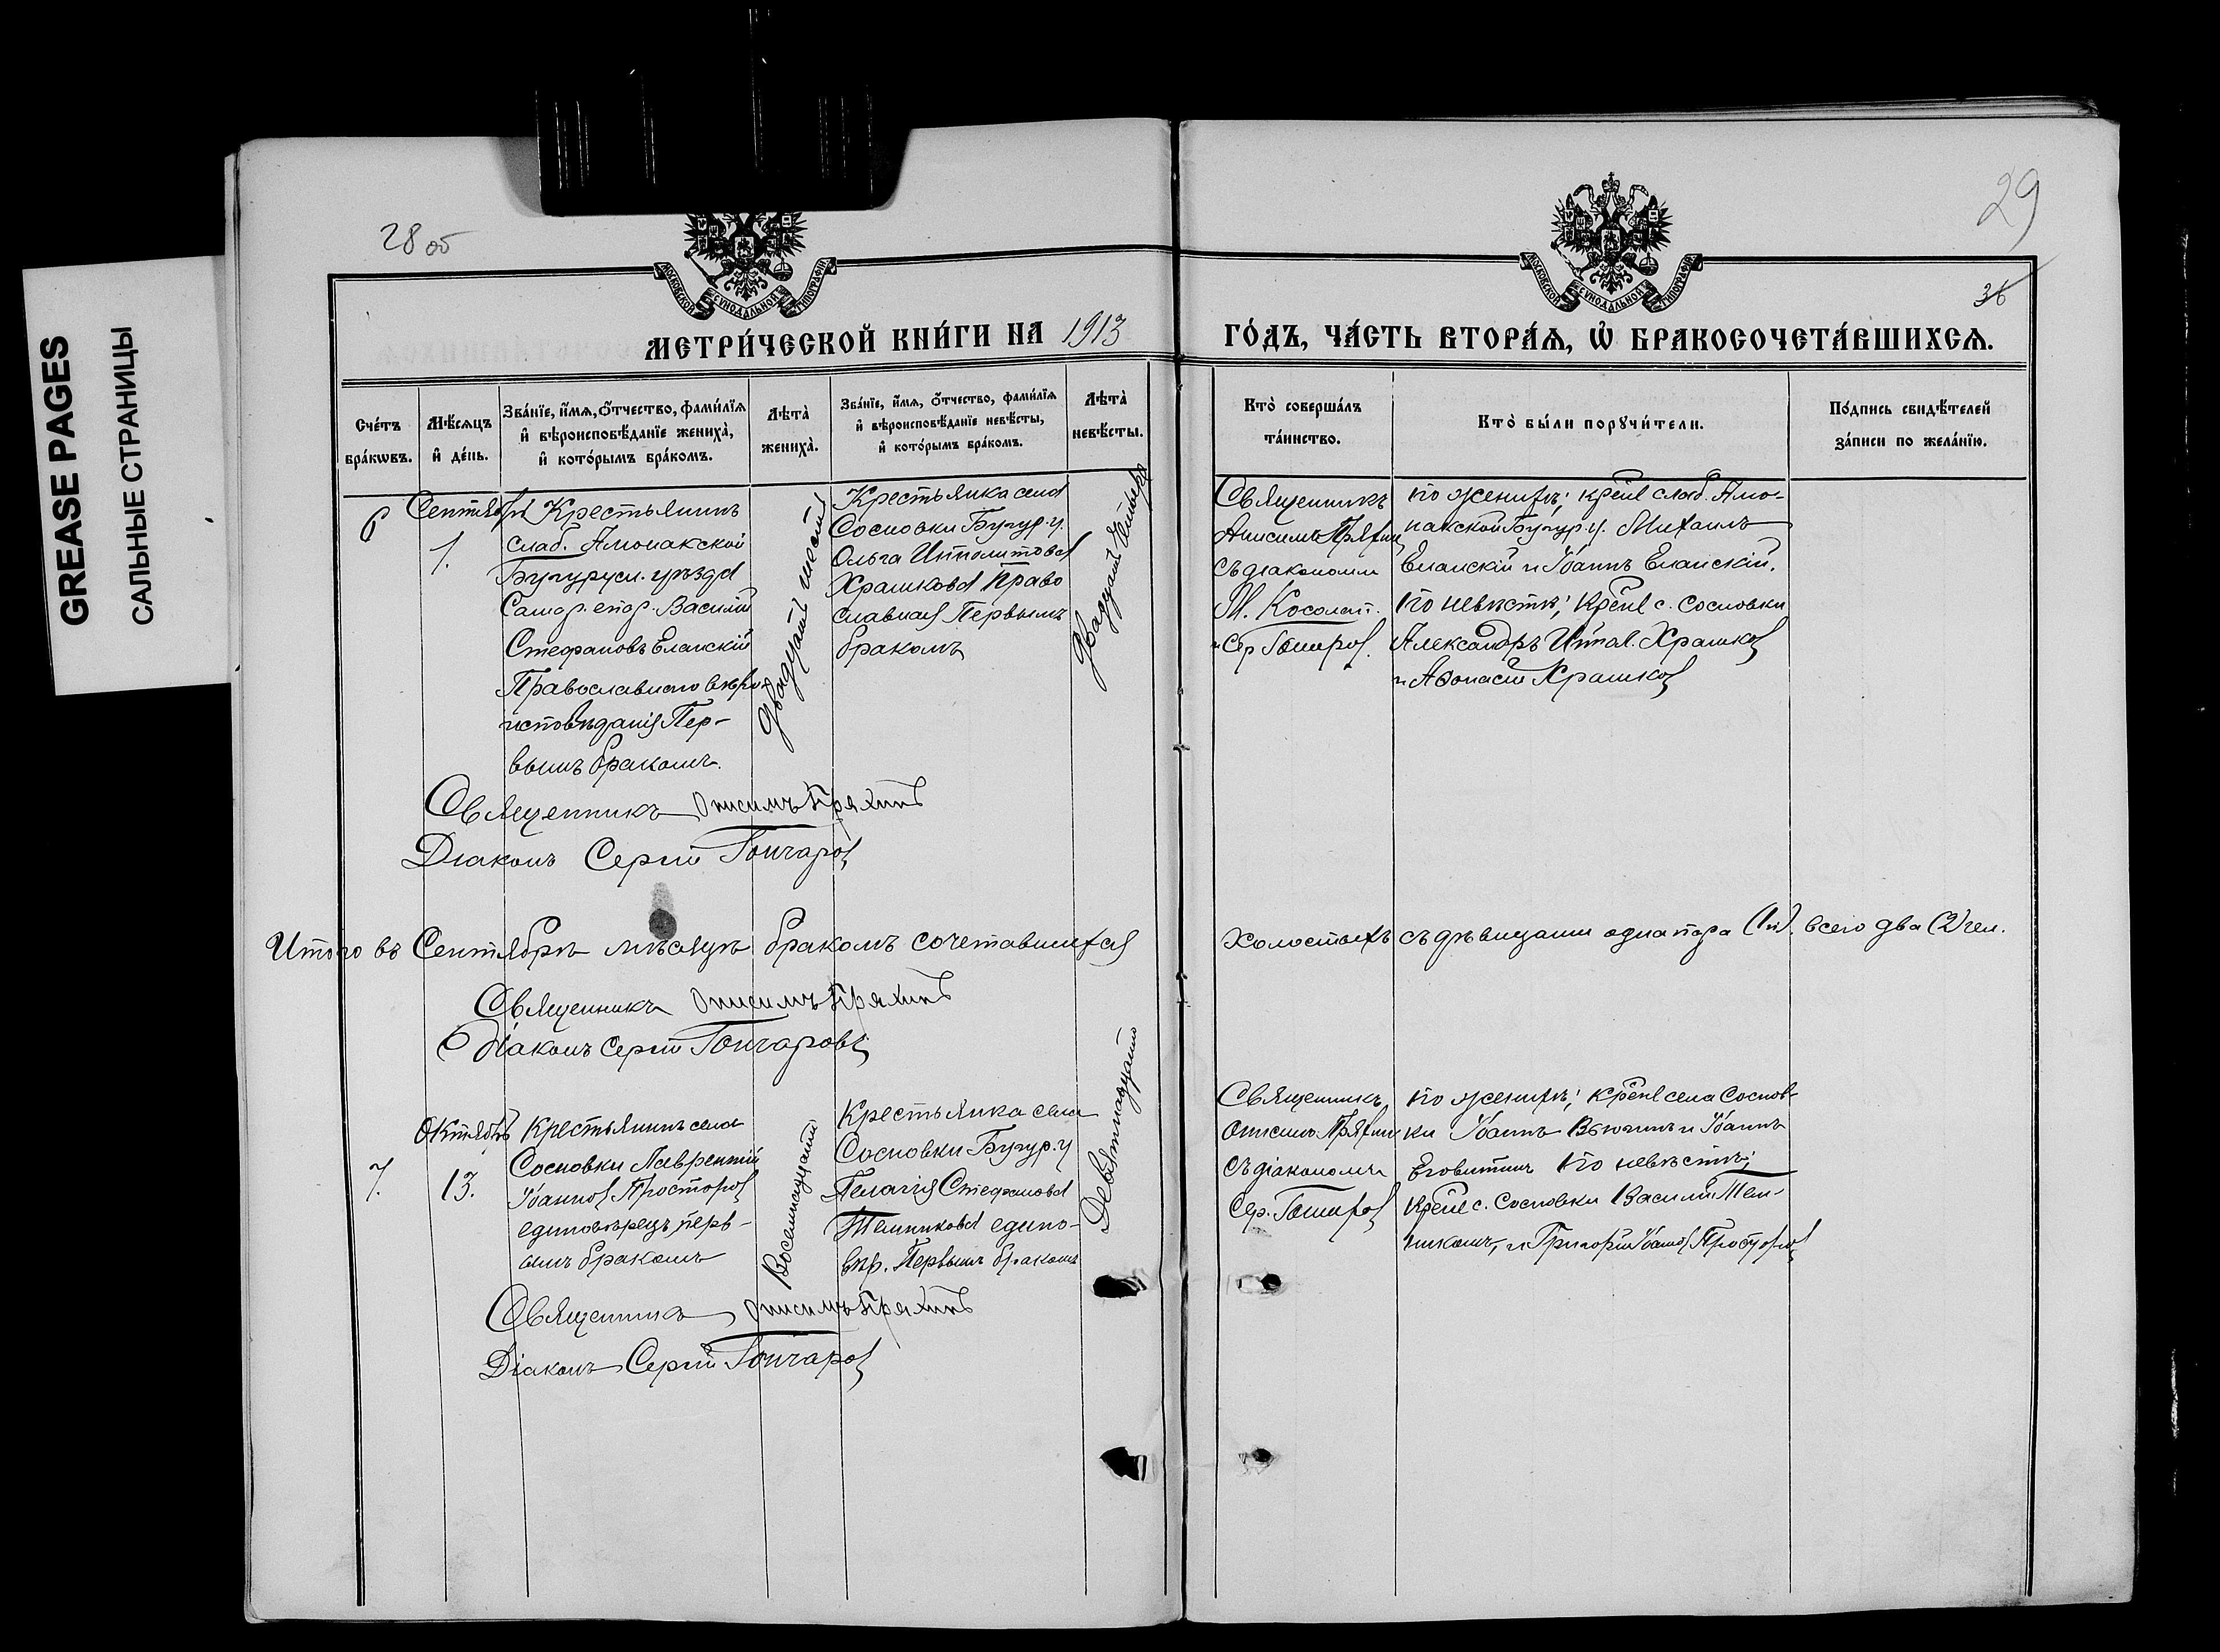 GREASE PAGES
САЛЬНЫЕ СТРАНИЦЫ
28 об
29
36
МОСКОВСКОЙ СѴНОДАЛЬНОЙ ТИПОГРАФІИ
МОСКОВСКОЙ СѴНОДАЛЬНОЙ ТИПОГРАФІИ
МЕТРИ́ЧЕСКОЙ КНИ́ГИ НА 1913
ГО́ДЪ, ЧА́СТЬ ВТОРА́Ѧ, Ѡ҆ БРАКОСОЧЕТА́ВШИХСѦ.
Сче́тъ бра́кѡвъ.
Мѣ́сѧцъ и҆ де́нь.
Зва́нїе, и҆́мѧ, ѻ҆́тчество, фами́лїѧ и҆ вѣроисповѣ́данїе жениха̀, и҆ кото́рымъ бра́комъ.
Лѣта̀ жениха̀.
Зва́нїе, и҆́мѧ, ѻ҆́тчество, фами́лїѧ и҆ вѣроисповѣ́данїе невѣ́сты, и҆ кото́рымъ бра́комъ.
Лѣта̀ невѣ́сты.
Кто̀ соверша́лъ та́инство.
Кто̀ бы́ли порꙋчи́тели.
По́дпись свидѣ́телей за́писи по жела́нїю.
6
Сентября
1.
Крестьянинъ
слоб. Амонакской
Бугурусл. уѣзда
Самар. епар. Василій
Стефановъ Еланскій
Православнаго вѣро-
исповѣданія Пер-
вымъ бракомъ.
Двадцать шесть
Крестьянка села
Сосновки Бугур. у.
Ольга Ипполитова
Храмкова Право
славная Первымъ
бракомъ
Двадцать четыре
Священникъ
Анисимъ Пряхин
съ діакономи
М. Косолап.
и Сер Гончаров.
по женихѣ; кр-не слоб. Амо-
накской Бугур. у. Михаилъ
Еланскій и Іоаннъ Еланскій.
по невѣстѣ; кр-не с. Сосновки
Александръ Иппол. Храмков
и Афонасій Храмков
Священникъ Онисимъ Пряхинъ
Діаконъ Сергій Гончаров
Итого въ Сентябрѣ мѣсяцѣ бракомъ сочетавшихся
холостыхъ съ дѣвицами одна пара (1п). всего два (2) чел.
Священникъ Онисимъ Пряхинъ
Діаконъ Сергій Гончаровъ
7.
Октябрь
13.
Крестьянинъ села
Сосновки Лаврентій
Іоаннов Просторов
единовѣрецъ перв-
ымъ бракомъ
Восемнадцать
Крестьянка села
Сосновки Бугур. у
Пелагія Стефанова
Темникова едино-
вѣр. Первымъ бракомъ
Девятнадцать
Священникъ
Онисимъ Пряхин
съ діакономъ
Сер. Гончаров
по женихѣ; кр-не села Соснов-
ки Іоаннъ Вьюшинъ и Іоаннъ
по невѣстѣ;
кр-не с. Сосновки Василій Тем-
никовъ, и Григорій Іоаннов Просторов
Священникъ Онисимъ Пряхинъ
Діаконъ Сергій Гончаров